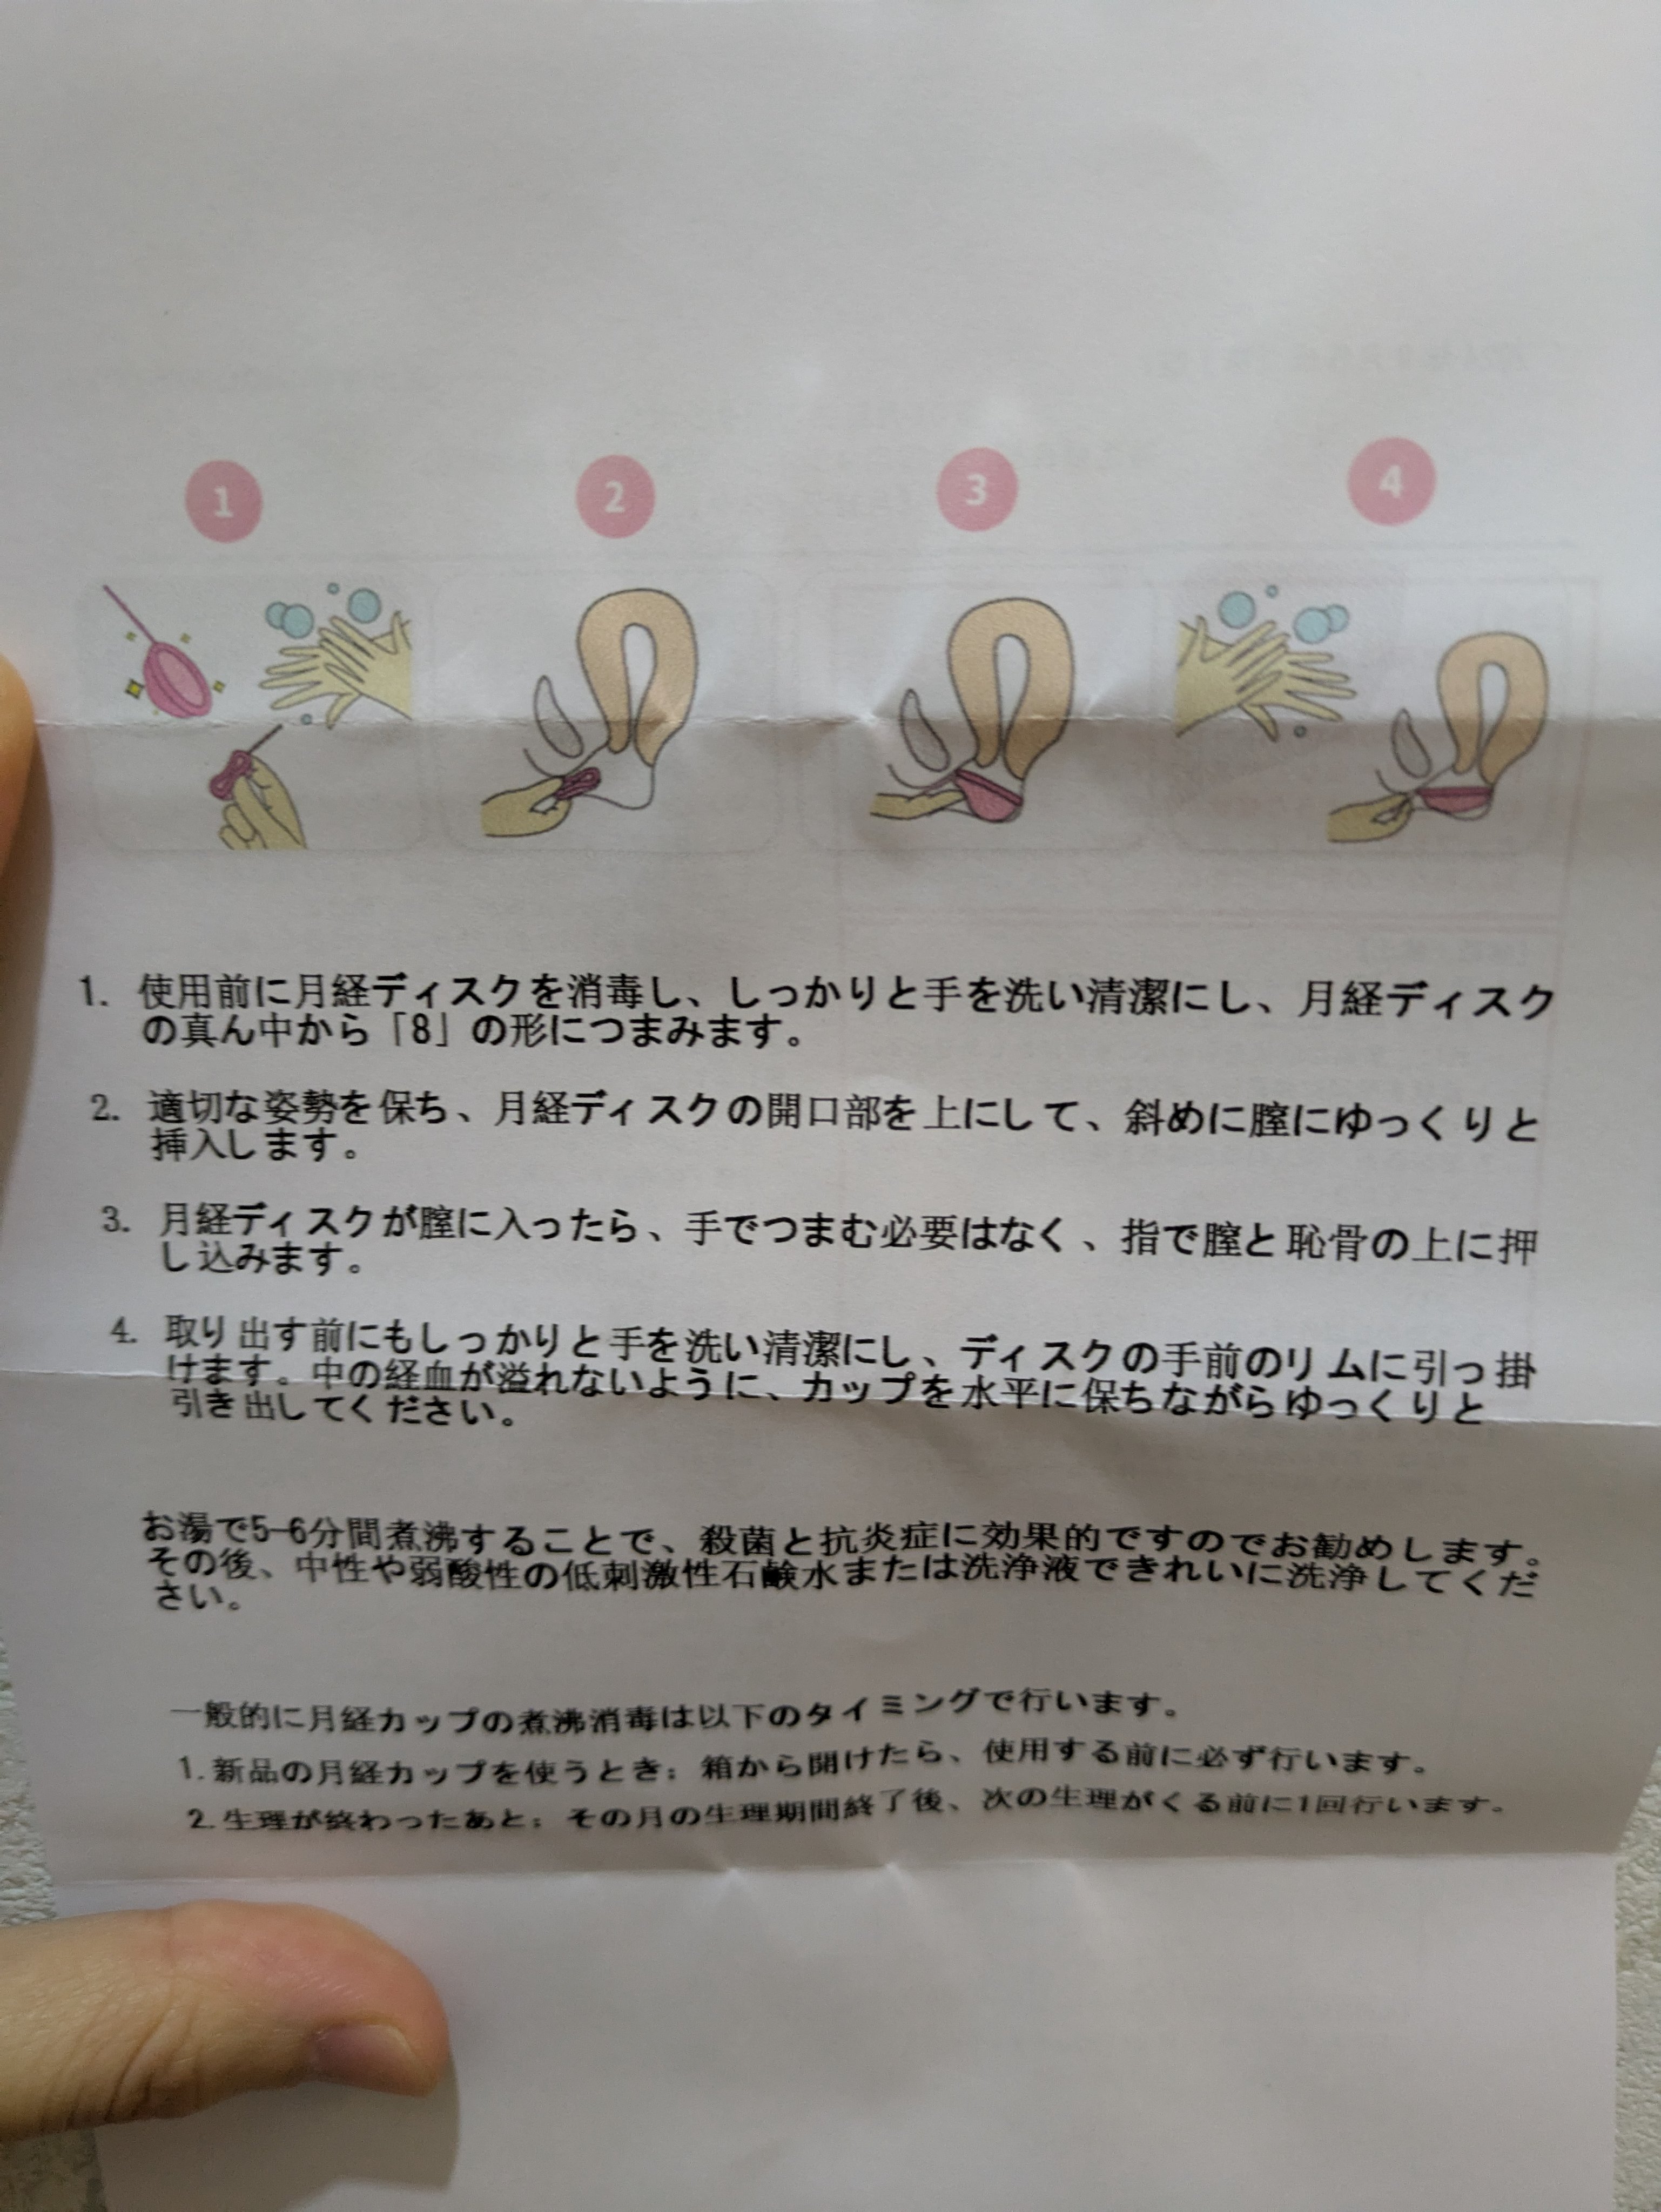 1
2
3
4
1. 使用前に月経ディスクを消毒し、しっかりと手を洗い清潔にし、月経ディスク
の真ん中から「8」の形につまみます。
2. 適切な姿勢を保ち、月経ディスクの開口部を上にして、斜めに膣にゆっくりと
挿入します。
3. 月経ディスクが膣に入ったら、手でつまむ必要はなく、指で膣と恥骨の上に押
し込みます。
4. 取り出す前にもしっかりと手を洗い清潔にし、ディスクの手前のリムに引っ掛
けます。中の経血が溢れないように、カップを水平に保ちながらゆっくりと
引き出してください。
お湯で5-6分間煮沸することで、殺菌と抗炎症に効果的ですのでお勧めします。
その後、中性や弱酸性の低刺激性石鹸水または洗浄液できれいに洗浄してくだ
さい。
一般的に月経カップの煮沸消毒は以下のタイミングで行います。
1. 新品の月経カップを使うとき：箱から開けたら、使用する前に必ず行います。
2. 生理が終わったあと：その月の生理期間終了後、次の生理がくる前に1回行います。